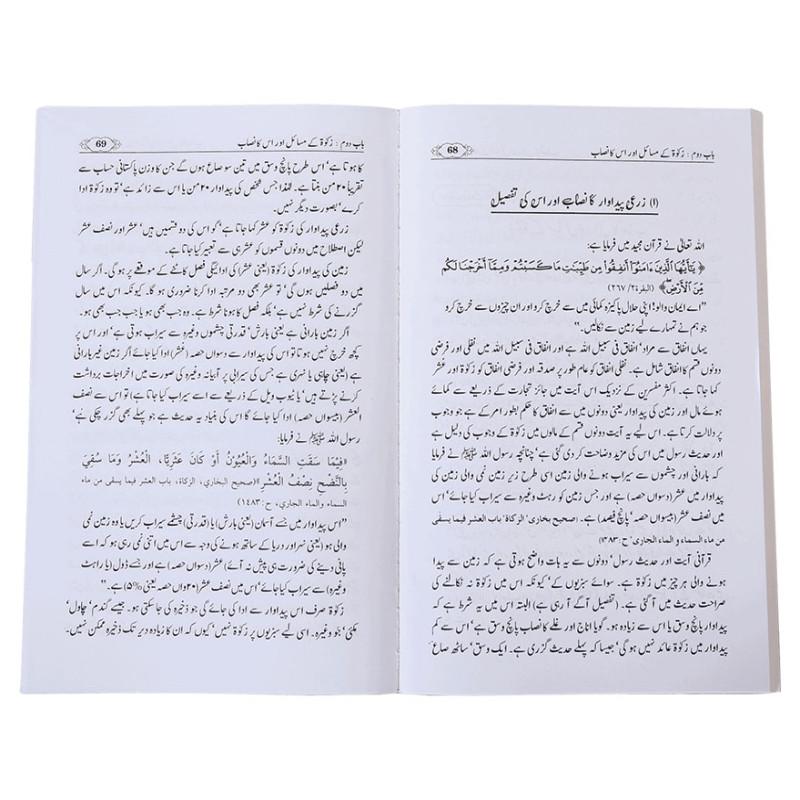 باب دوم : زکوٰۃ کے مسائل اور اس کا نصاب
68
(۱) زرعی پیداوار کا نصاب ہے اور اس کی تفصیل
اللہ تعالیٰ نے قرآن مجید میں فرمایا ہے:
﴿ يَٰٓأَيُّهَا ٱلَّذِينَ ءَامَنُوٓاْ أَنفِقُواْ مِن طَيِّبَٰتِ مَا كَسَبْتُمْ وَمِمَّآ أَخْرَجْنَا لَكُم
مِّنَ ٱلْأَرْضِ ﴾ (البقرۃ۲/ ۲۶۷)
"اے ایمان والو! اپنی حلال پاکیزہ کمائی میں سے خرچ کرو اور ان چیزوں سے خرچ کرو
جو ہم نے تمہارے لیے زمین سے نکالیں۔"
یہاں انفاق سے مراد' انفاق فی سبیل اللہ ہے اور انفاق فی سبیل اللہ میں نفلی اور فرضی
دونوں قسم کا انفاق شامل ہے۔ نفلی انفاق کو عام طور پر صدقہ اور فرضی انفاق کو زکوٰۃ اور عشر
کہا جاتا ہے۔ اکثر مفسرین کے نزدیک اس آیت میں جائز تجارت کے ذریعے سے کمائے
ہوئے مال اور زمین کی پیداوار یعنی دونوں میں سے انفاق کا حکم بطور امر کے ہے جو وجوب
پر دلالت کرتا ہے۔ اس لیے یہ آیت دونوں قسم کے مالوں میں زکوٰۃ کے وجوب کی دلیل ہے
اور حدیث رسول میں اس کی مزید وضاحت کر دی گئی ہے' چنانچہ رسول اللہ ﷺ نے فرمایا
کہ بارانی اور چشموں سے سیراب ہونے والی زمین اسی طرح زیر زمین نمی والی زمین کی
پیداوار میں عشر (دسواں حصہ) ہے اور جس زمین کو رہٹ وغیرہ سے سیراب کیا جائے' اس
میں نصف عشر (بیسواں حصہ' پانچ فیصد) ہے۔ (صحیح بخاری' الزکاۃ' باب العشر فیما یسقی
من ماء السماء و الماء الجاری' ح:۱۳۸۳)
قرآنی آیت اور حدیث رسول' دونوں سے یہ بات واضح ہوتی ہے کہ زمین سے پیدا
ہونے والی ہر چیز میں زکوٰۃ ہے۔ سوائے سبزیوں کے' کیونکہ اس میں زکوٰۃ نہ نکالنے کی
صراحت حدیث میں آ گئی ہے۔ (تفصیل آگے آ رہی ہے) البتہ اس میں یہ شرط ہے کہ
پیداوار پانچ وسق یا اس سے زیادہ ہو۔ گویا اناج اور غلے کا نصاب پانچ وسق ہے' اس سے کم
پیداوار میں زکوٰۃ عائد نہیں ہو گی' جیسا کہ پہلے حدیث گزری ہے۔ ایک وسق' ساٹھ صاع
باب دوم : زکوٰۃ کے مسائل اور اس کا نصاب
69
کا ہوتا ہے' اس طرح پانچ وسق میں تین سو صاع ہوں گے جن کا وزن پاکستانی حساب سے
تقریباً ۲۰ من بنتا ہے۔ لہٰذا جس شخص کی پیداوار ۲۰ من یا اس سے زائد ہے' تو وہ زکوٰۃ ادا
کرے' بصورت دیگر نہیں۔
زرعی پیداوار کی زکوٰۃ کو عشر کہا جاتا ہے' گو اس کی دو قسمیں ہیں' عشر اور نصف عشر
لیکن اصطلاح میں دونوں قسموں کو عشر ہی سے تعبیر کیا جاتا ہے۔
زمین کی پیداوار کی زکوٰۃ (یعنی عشر) کی ادائیگی فصل کاٹنے کے موقعے پر ہو گی۔ اگر سال
میں دو فصلیں ہوں گی' تو عشر بھی دو مرتبہ ادا کرنا ضروری ہو گا۔ کیونکہ اس میں سال
گزرنے کی شرط نہیں ہے' بلکہ فصل کا ہونا شرط ہے۔ وہ جب بھی ہو یا جب جب بھی ہو۔
اگر زمین بارانی ہے یعنی بارش' قدرتی چشموں وغیرہ سے سیراب ہوتی ہے' اور اس پر
کچھ خرچ نہیں ہوتا تو اس کی پیداوار سے دسواں حصہ (عشر) ادا کیا جائے اگر زمین غیر بارانی
ہے (یعنی چاہی یا نہری ہے جس کی سیرابی پر آبیانہ وغیرہ کی صورت میں اخراجات برداشت
کرنے پڑتے ہیں' یا ٹیوب ویل کے ذریعے سے اسے سیراب کیا جاتا ہے) تو اس سے نصف
العشر (بیسواں حصہ) ادا کیا جائے گا اس کی بنیاد یہ حدیث ہے جو پہلے بھی گزر چکی ہے'
رسول اللہ ﷺ نے فرمایا:
«فِيْمَا سَقَتِ السَّمَاءُ وَالْعُيُوْنُ أَوْ كَانَ عَثَرِيًّا، الْعُشْرُ وَمَا سُقِيَ
بِالنَّضْحِ نِصْفُ الْعُشْرِ»(صحيح البخاري، الزكاة، باب العشر فيما يسقى من ماء
السماء والماء الجاري، ح:۱۴۸۳)
"اس پیداوار میں جسے آسمان (یعنی بارش) یا (قدرتی) چشمے سیراب کریں یا وہ زمین نمی
والی ہو (یعنی نہر اور دریا کے ساتھ ہونے کی وجہ سے اس میں اتنی نمی رہتی ہو کہ اسے
پانی دینے کی ضرورت ہی پیش نہ آئے) عشر (دسواں حصہ) ہے اور جسے ڈول (یا راہٹ
وغیرہ) سے سیراب کیا جائے' اس میں نصف عشر (۲۰واں حصہ یعنی ۵%) ہے۔"
زکوٰۃ صرف اس پیداوار سے ادا کی جائے گی جو ذخیرہ کی جا سکتی ہو۔ جیسے گندم' چاول'
مکئی' جو وغیرہ۔ اسی لیے سبزیوں پر زکوٰۃ نہیں' کیوں کہ ان کا زیادہ دیر تک ذخیرہ ممکن نہیں۔